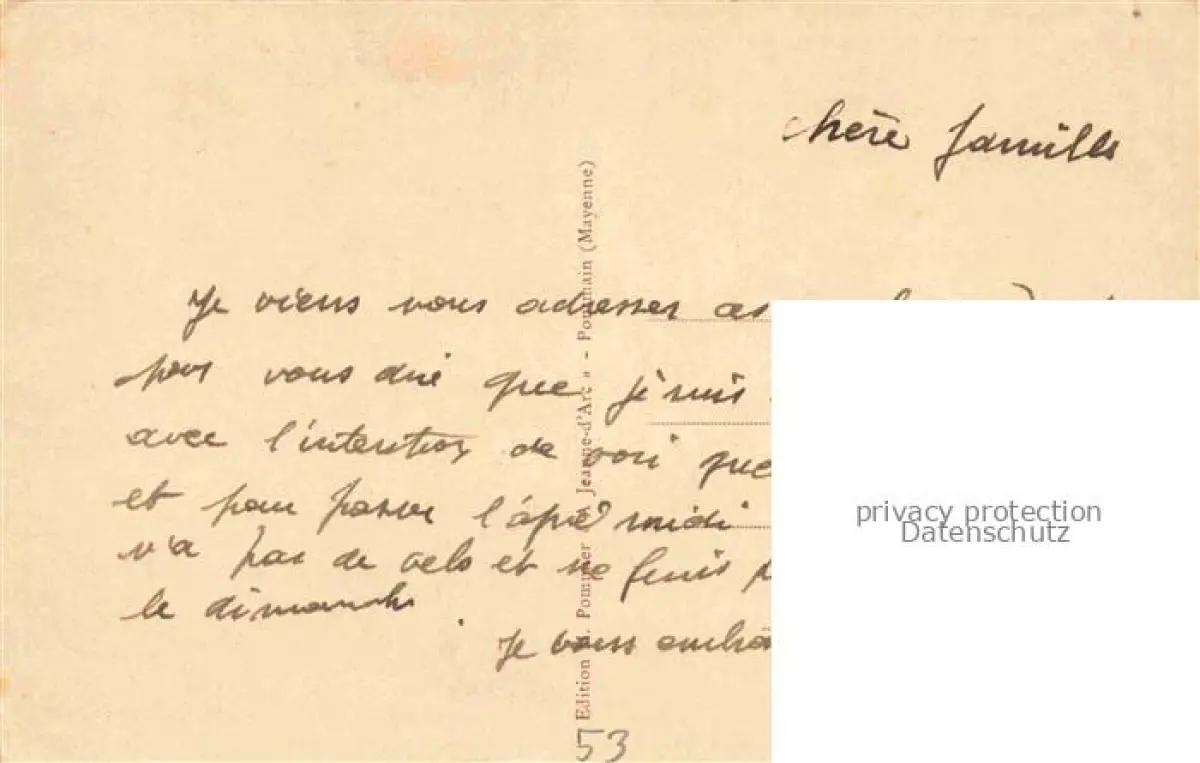 chère famille
Je viens vous adresser
pour vous dire que je suis
avec l'intention de voir que
et pour passer l'après midi
n'a pas de velo et ne finis
le dimanche.
Je vous embra
Edition . Pommier « Jeanne-d'Arc » - Pontmain (Mayenne)
53
privacy protection
Datenschutz